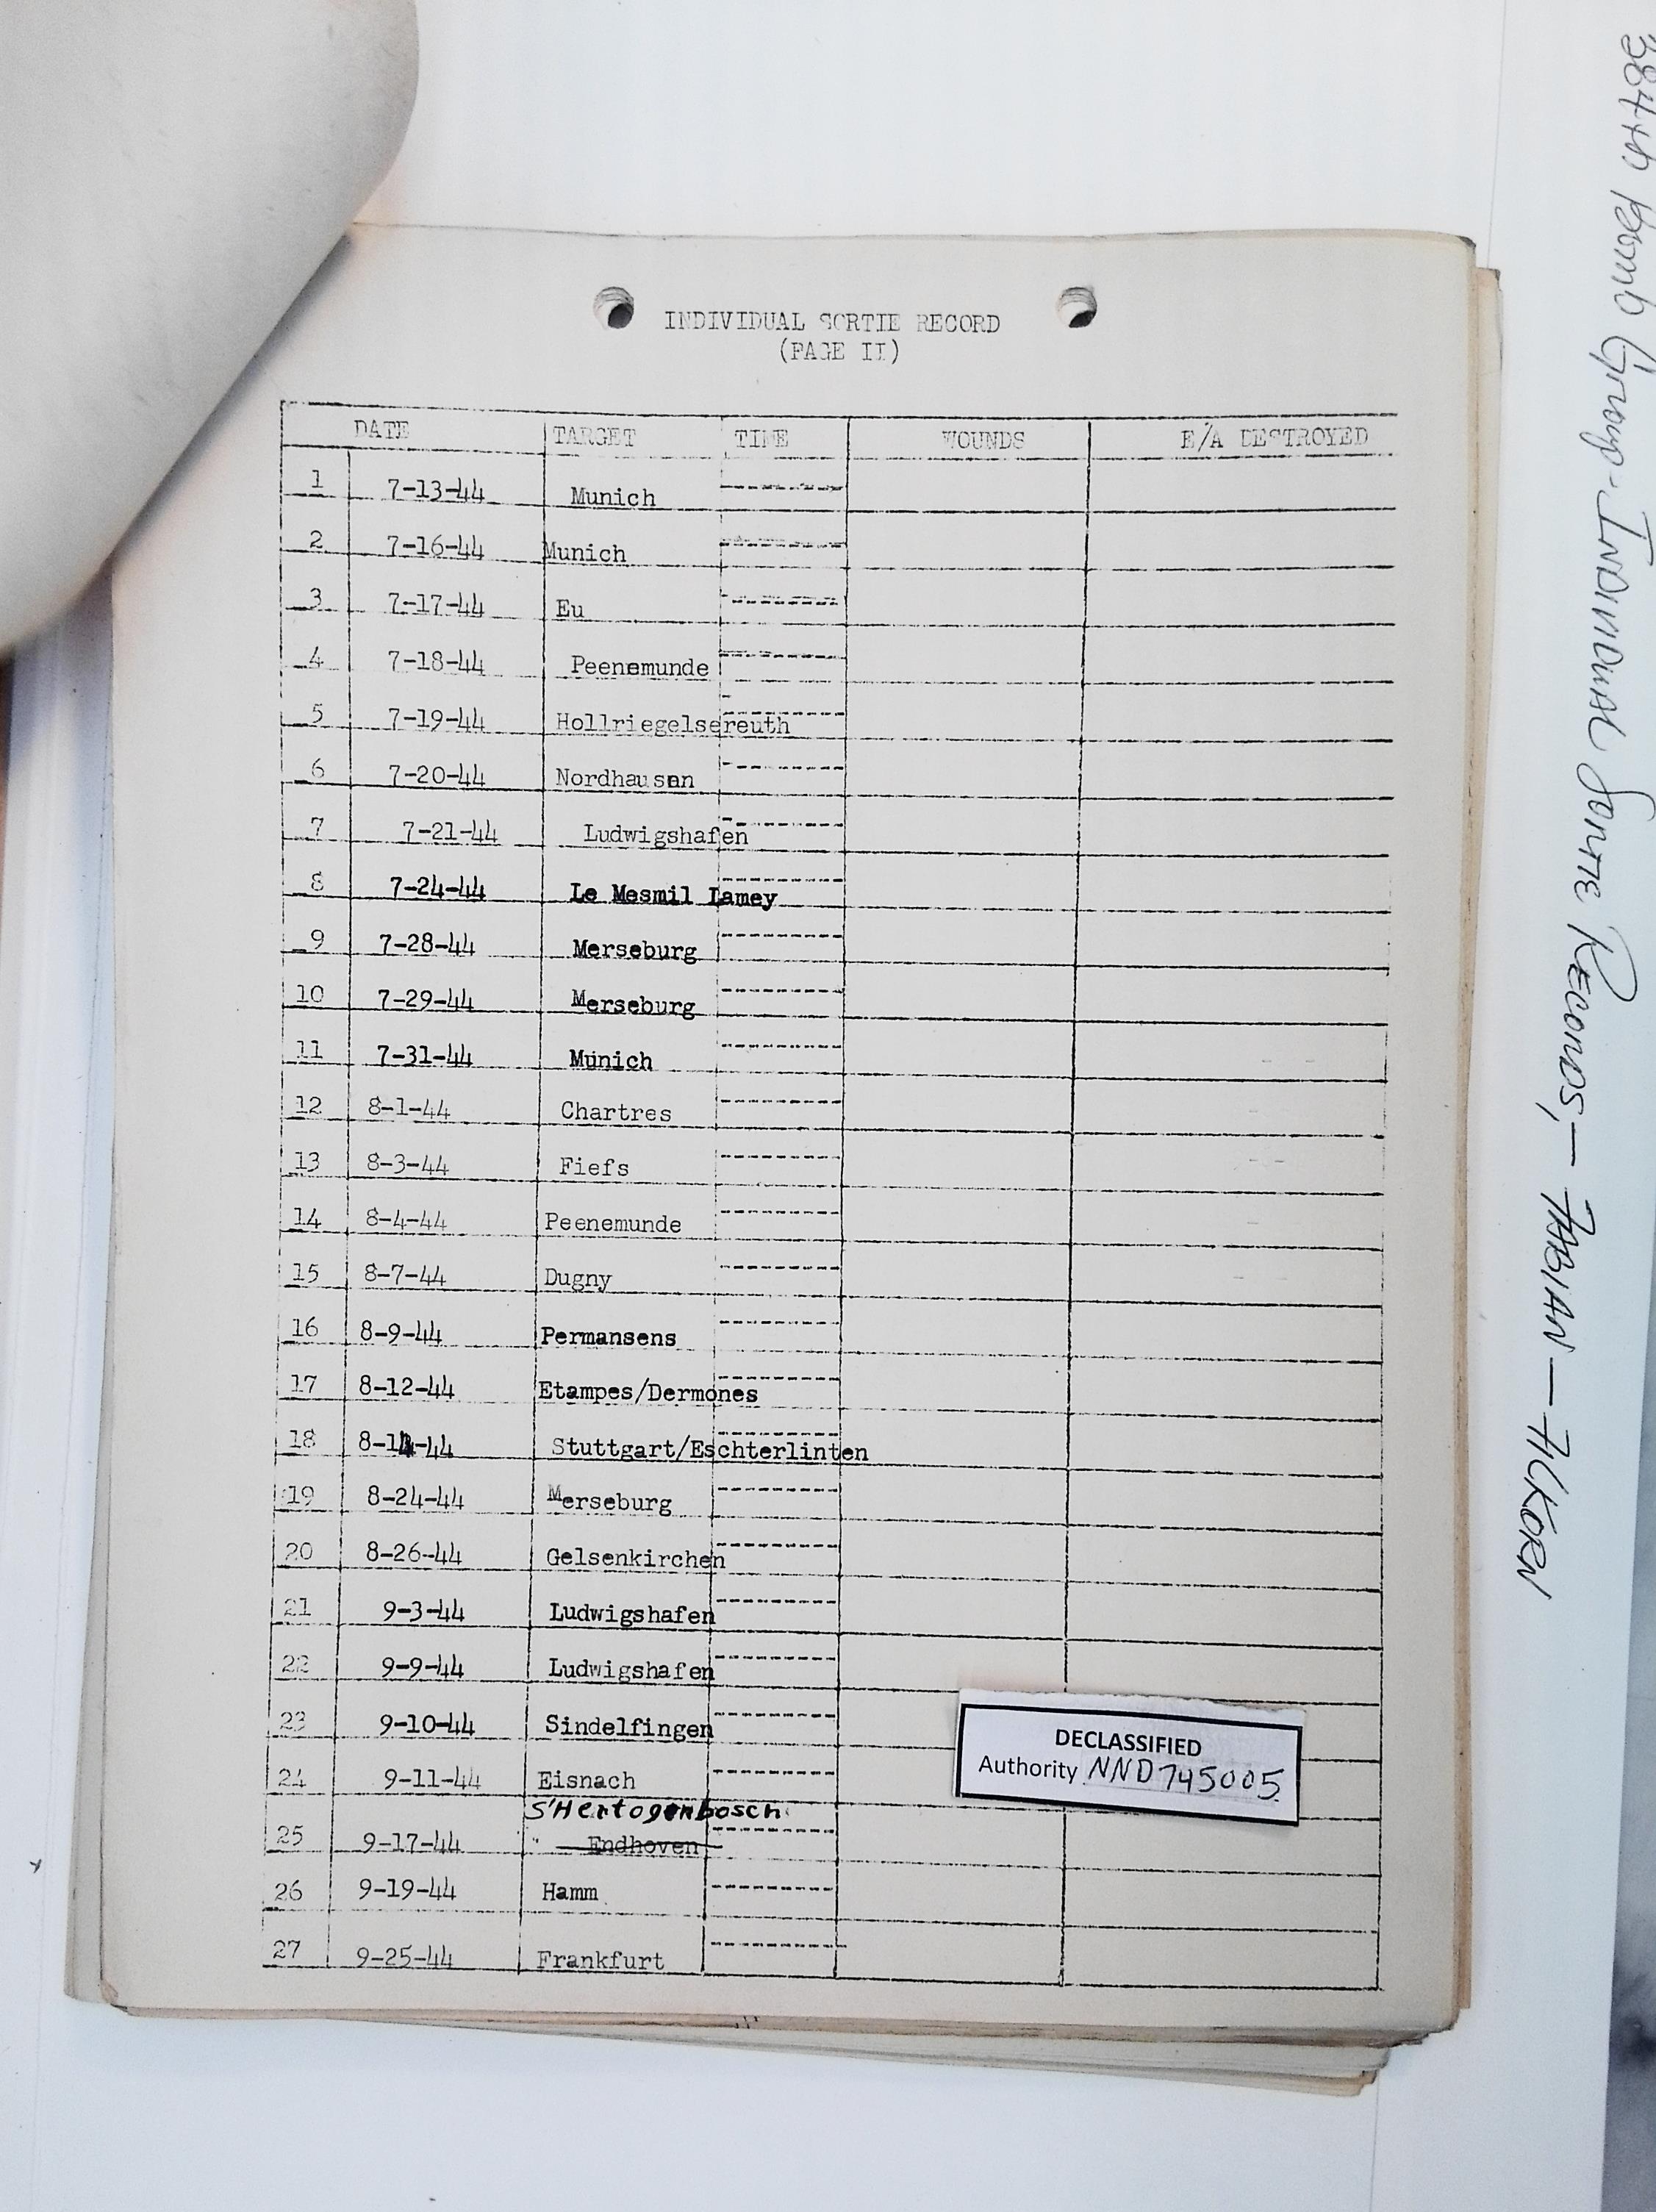 INDIVIDUAL SORTIE RECORD
(PAGE II)
DATE TARGET TIME WOUNDS E/A DESTROYED
1 7-13-44 Munich
2 7-16-44 Munich
3 7-17-44 Eu
4 7-18-44 Peenemunde
5 7-19-44 Hollriegelsereuth
6 7-20-44 Nordhausen
7 7-21-44 Ludwigshafen
8 7-24-44 Le Mesmil Lamey
9 7-28-44 Merseburg
10 7-29-44 Merseburg
11 7-31-44 Munich
12 8-1-44 Chartres
13 8-3-44 Fiefs
14 8-4-44 Peenemunde
15 8-7-44 Dugny
16 8-9-44 Permansens
17 8-12-44 Etampes/Dermones
18 8-14-44 Stuttgart/Eschterlinten
19 8-24-44 Merseburg
20 8-26-44 Gelsenkirchen
21 9-3-44 Ludwigshafen
22 9-9-44 Ludwigshafen
23 9-10-44 Sindelfingen
24 9-11-44 Eisnach
S'Hertogenbosch
25 9-17-44 " Endhoven
26 9-19-44 Hamm
27 9-25-44 Frankfurt
DECLASSIFIED
Authority NND745005
384th Bomb Group-Individual Sortie Records,- FABIAN - FICKORN